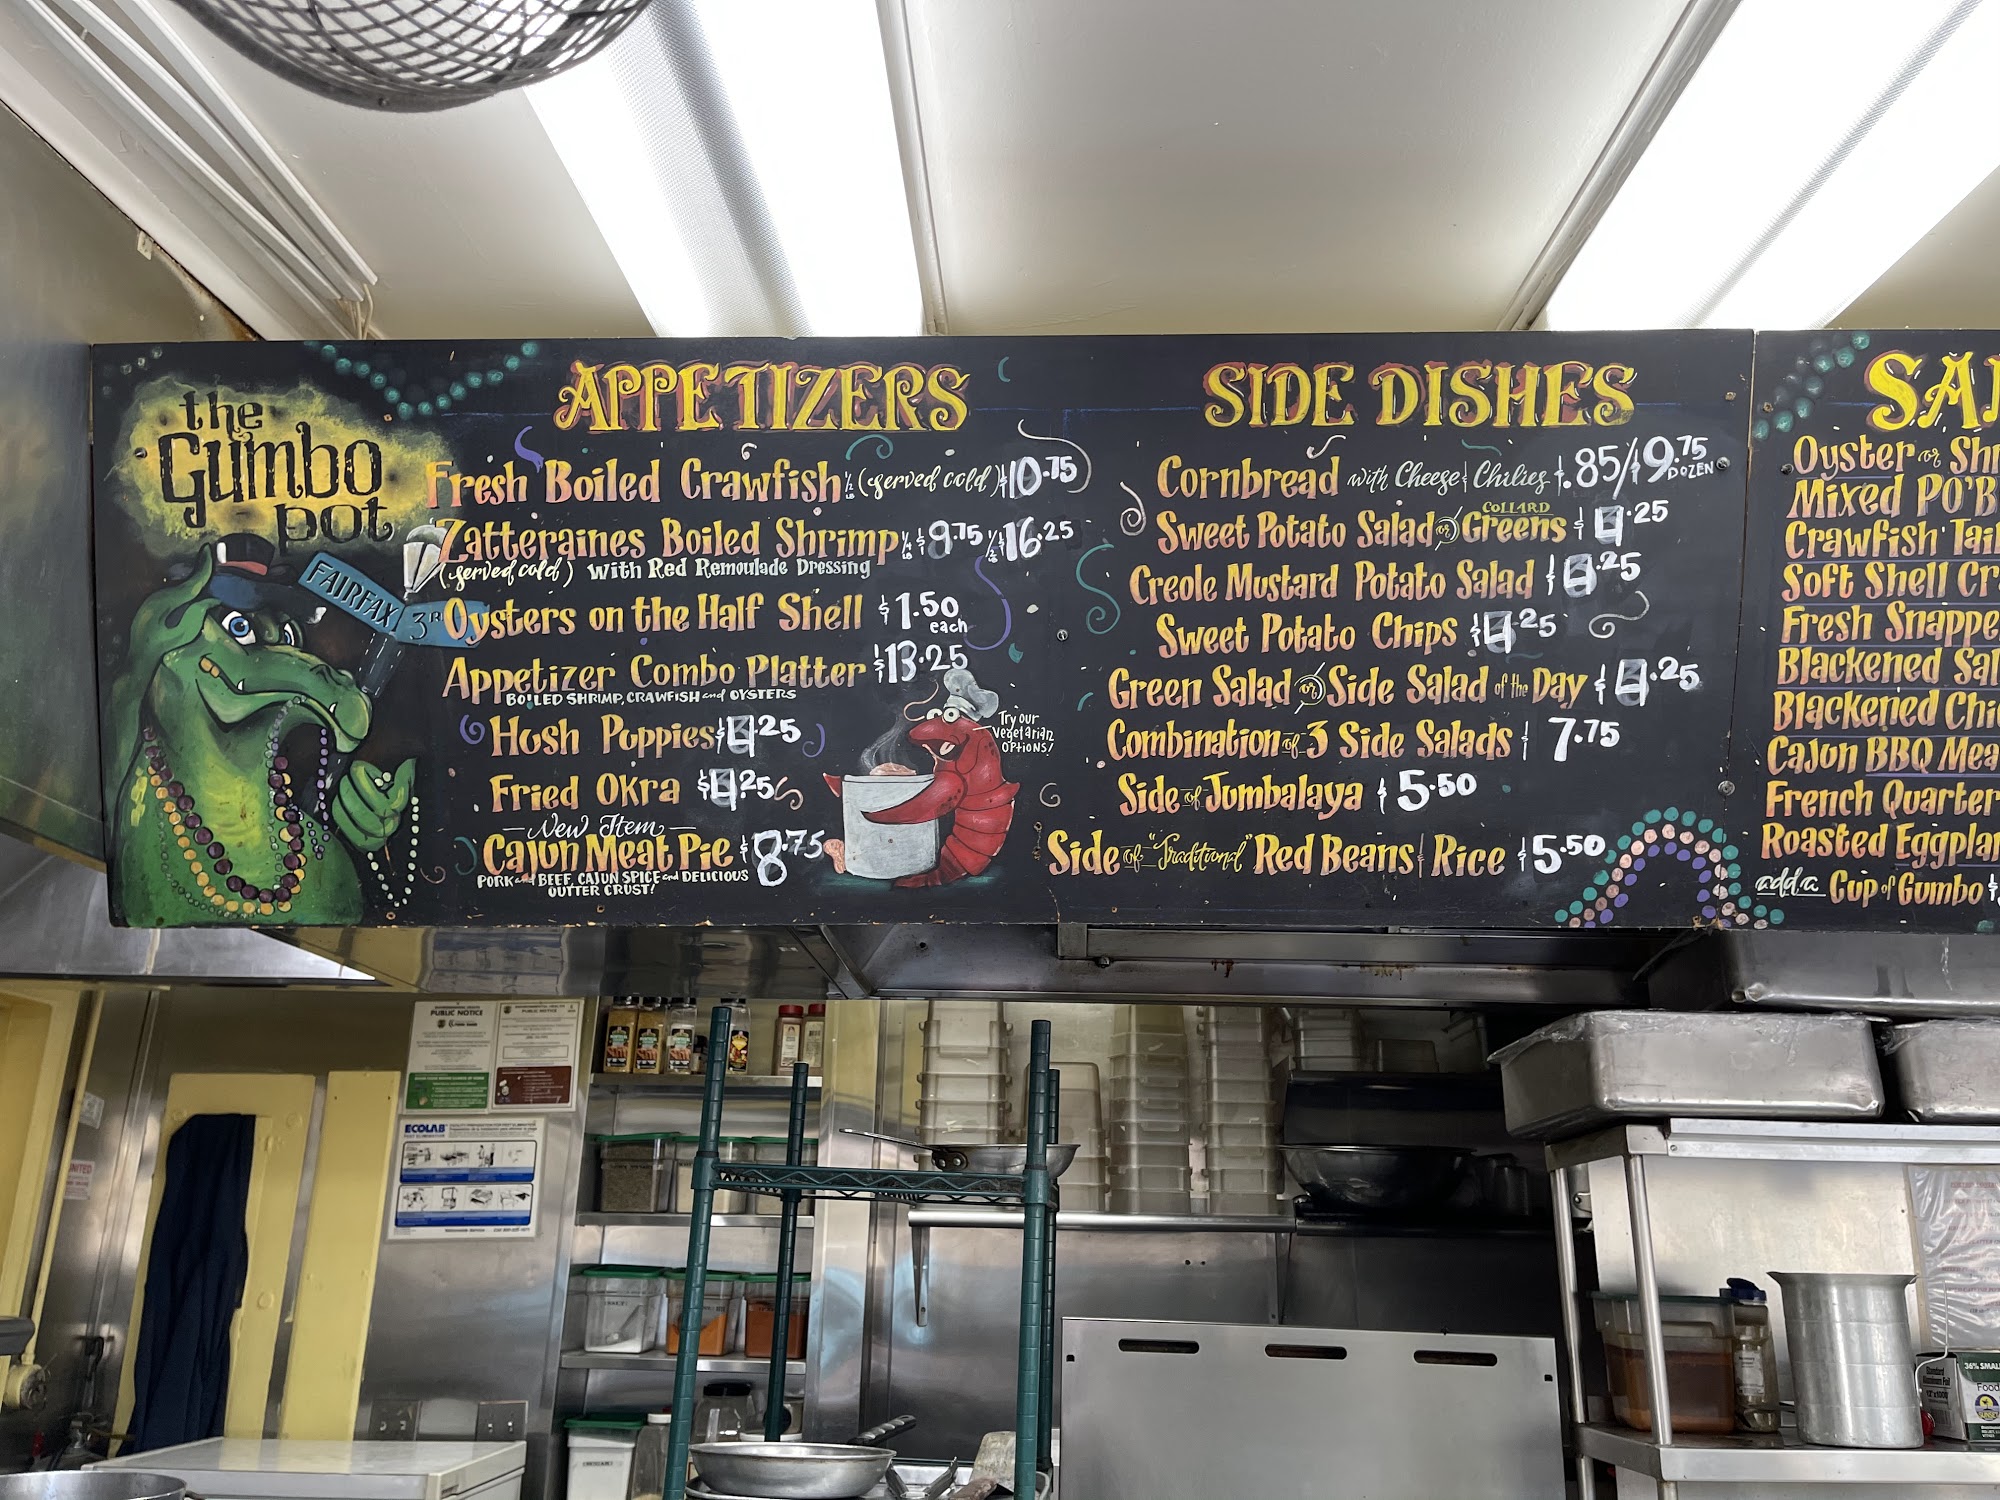 the
Gumbo
pot
FAIRFAX
3RD
APPETIZERS
Fresh Boiled Crawfish 1/2 LB (served cold) $10.75
Zatteraines Boiled Shrimp 1/4 LB $9.75 1/2 LB $16.25
(served cold) With Red Remoulade Dressing
Oysters on the Half Shell $1.50
each
Appetizer Combo Platter $13.25
BOILED SHRIMP, CRAWFISH and OYSTERS
Hush Puppies $4.25
Fried Okra $4.25
New Item
Cajun Meat Pie $8.75
PORK and BEEF, CAJUN SPICE and DELICIOUS
OUTTER CRUST!
Try our
Vegetarian
OPTIONS!
SIDE DISHES
Cornbread with Cheese & Chilies $.85/$9.75
DOZEN
Sweet Potato Salad or COLLARD Greens $4.25
Creole Mustard Potato Salad $4.25
Sweet Potato Chips $4.25
Green Salad or Side Salad of the Day $4.25
Combination of 3 Side Salads $7.75
Side of Jumbalaya $5.50
Side of "Traditional" Red Beans & Rice $5.50
Oyster or
Mixed PO'B
Crawfish
Soft Shell
Fresh
Blackened
Blackened
Cajun BBQ
French Quarter
Roasted
add a Cup of Gumbo $
PUBLIC NOTICE
PUBLIC NOTICE
ECOLAB